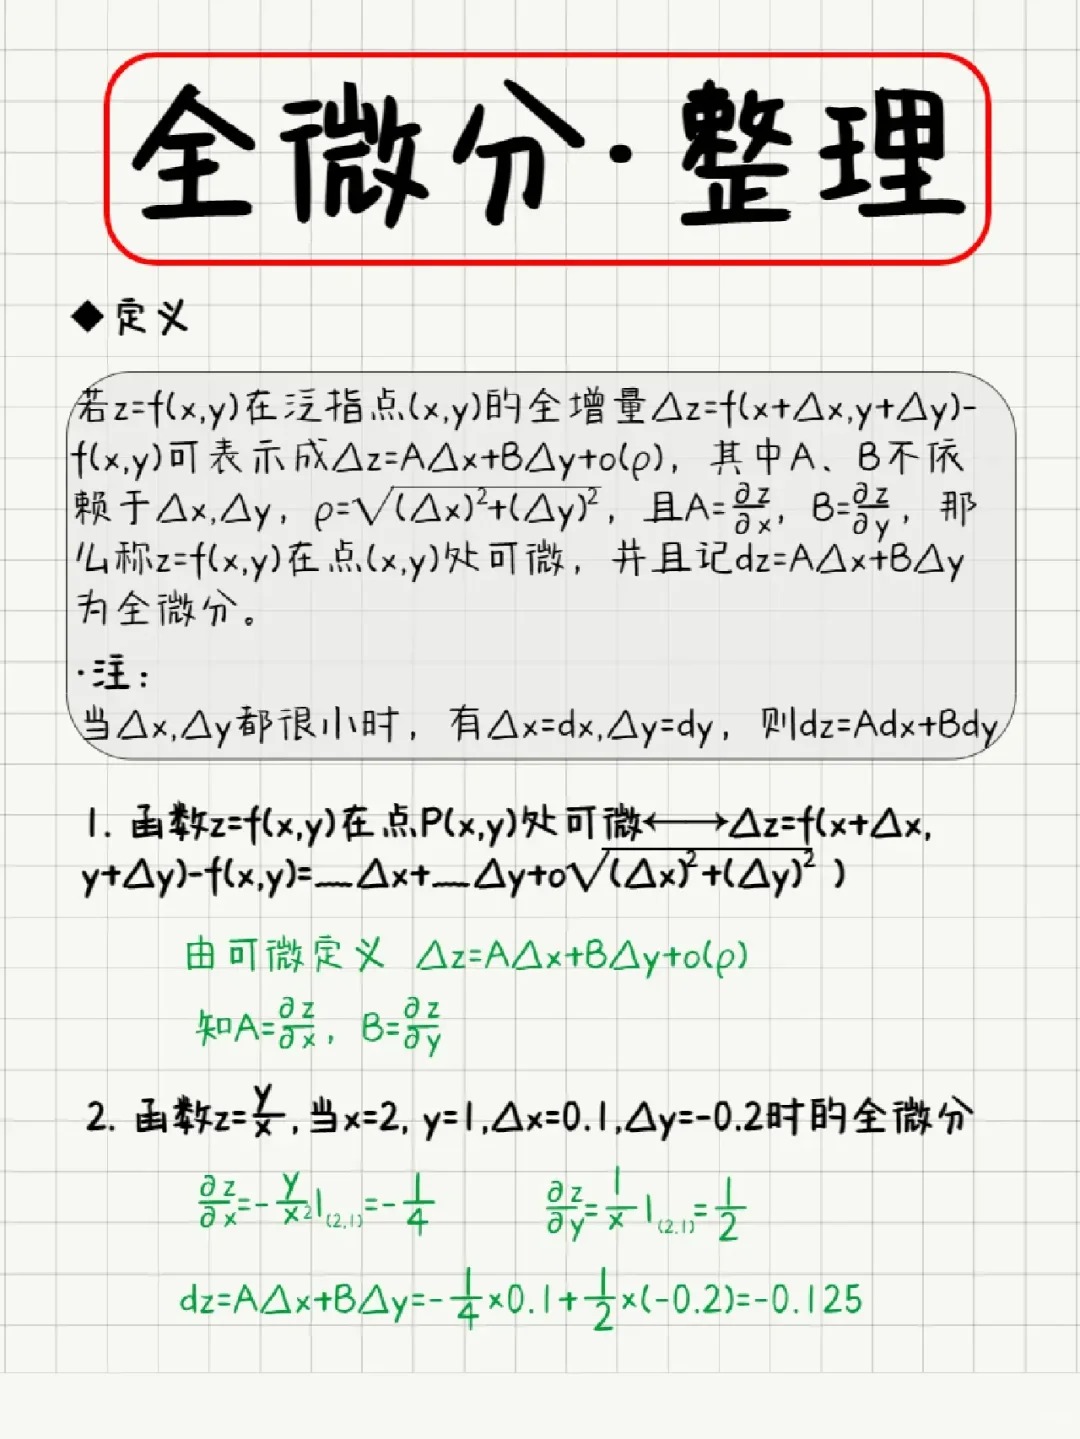 全微分·整理
◆定义
若z=f(x,y)在泛指点(x,y)的全增量△z=f(x+△x,y+△y)-
f(x,y)可表示成△z=A△x+B△y+o(ρ)，其中A、B不依
赖于△x,△y，ρ=√(△x)²+(△y)²，且A=∂z/∂x，B=∂z/∂y，那
么称z=f(x,y)在点(x,y)处可微，并且记dz=A△x+B△y
为全微分。
·注：
当△x,△y都很小时，有△x=dx,△y=dy，则dz=Adx+Bdy
1. 函数z=f(x,y)在点P(x,y)处可微⟷△z=f(x+△x,
y+△y)-f(x,y)=__△x+__△y+o√(△x)²+(△y)² )
由可微定义 △z=A△x+B△y+o(ρ)
知A=∂z/∂x，B=∂z/∂y
2. 函数z=y/x,当x=2, y=1,△x=0.1,△y=-0.2时的全微分
∂z/∂x=-y/x²|(2,1)=-1/4 ∂z/∂y=1/x|(2,1)=1/2
dz=A△x+B△y=-1/4×0.1+1/2×(-0.2)=-0.125